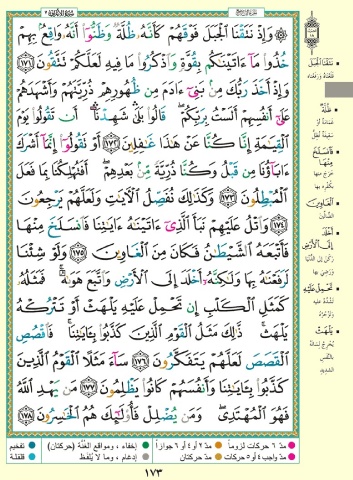 وَإِذْ نَتَقْنَا الْجَبَلَ فَوْقَهُمْ كَأَنَّهُ ظُلَّةٌ وَظَنُّوا أَنَّهُ وَاقِعٌ بِهِمْ
خُذُوا مَا آتَيْنَاكُم بِقُوَّةٍ وَاذْكُرُوا مَا فِيهِ لَعَلَّكُمْ تَتَّقُونَ ١٧١
وَإِذْ أَخَذَ رَبُّكَ مِن بَنِي آدَمَ مِن ظُهُورِهِمْ ذُرِّيَّتَهُمْ وَأَشْهَدَهُمْ
عَلَى أَنفُسِهِمْ أَلَسْتُ بِرَبِّكُمْ قَالُوا بَلَى شَهِدْنَا أَن تَقُولُوا يَوْمَ
الْقِيَامَةِ إِنَّا كُنَّا عَنْ هَذَا غَافِلِينَ ١٧٢ أَوْ تَقُولُوا إِنَّمَا أَشْرَكَ
آبَاؤُنَا مِن قَبْلُ وَكُنَّا ذُرِّيَّةً مِن بَعْدِهِمْ أَفَتُهْلِكُنَا بِمَا فَعَلَ
الْمُبْطِلُونَ ١٧٣ وَكَذَلِكَ نُفَصِّلُ الْآيَاتِ وَلَعَلَّهُمْ يَرْجِعُونَ
١٧٤ وَاتْلُ عَلَيْهِمْ نَبَأَ الَّذِي آتَيْنَاهُ آيَاتِنَا فَانسَلَخَ مِنْهَا
فَأَتْبَعَهُ الشَّيْطَانُ فَكَانَ مِنَ الْغَاوِينَ ١٧٥ وَلَوْ شِئْنَا
لَرَفَعْنَاهُ بِهَا وَلَكِنَّهُ أَخْلَدَ إِلَى الْأَرْضِ وَاتَّبَعَ هَوَاهُ فَمَثَلُهُ
كَمَثَلِ الْكَلْبِ إِن تَحْمِلْ عَلَيْهِ يَلْهَثْ أَوْ تَتْرُكْهُ
يَلْهَث ذَلِكَ مَثَلُ الْقَوْمِ الَّذِينَ كَذَّبُوا بِآيَاتِنَا فَاقْصُصِ
الْقَصَصَ لَعَلَّهُمْ يَتَفَكَّرُونَ ١٧٦ سَاءَ مَثَلًا الْقَوْمُ الَّذِينَ
كَذَّبُوا بِآيَاتِنَا وَأَنفُسَهُمْ كَانُوا يَظْلِمُونَ ١٧٧ مَن يَهْدِ اللَّهُ
فَهُوَ الْمُهْتَدِي وَمَن يُضْلِلْ فَأُولَئِكَ هُمُ الْخَاسِرُونَ ١٧٨
نَتَقْنَا الْجَبَلَ
ظُلَّةٌ
فَانسَلَخَ مِنْهَا
الْغَاوِينَ
الضالين
أَخْلَدَ إِلَى الْأَرْضِ
تَحْمِلْ عَلَيْهِ
يَلْهَثْ
مدّ ٦ حركات لزوماً مدّ ٢ أو ٤ أو ٦ جوازاً إخفاء، ومواقع الغنّة (حركتان) تفخيم
مدّ واجب ٤ أو ٥ حركات مدّ حركتان إدغام، وما لا يُلفظ قلقلة
١٧٣